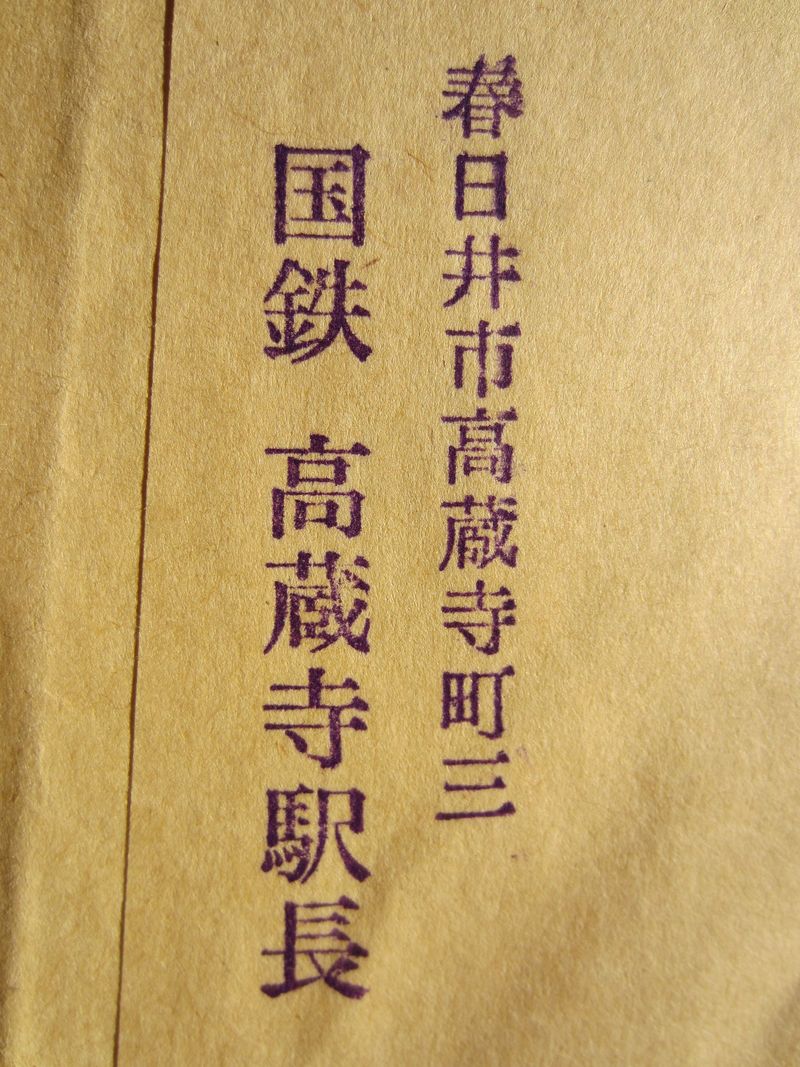 春日井市高蔵寺町三
国鉄 高蔵寺駅長